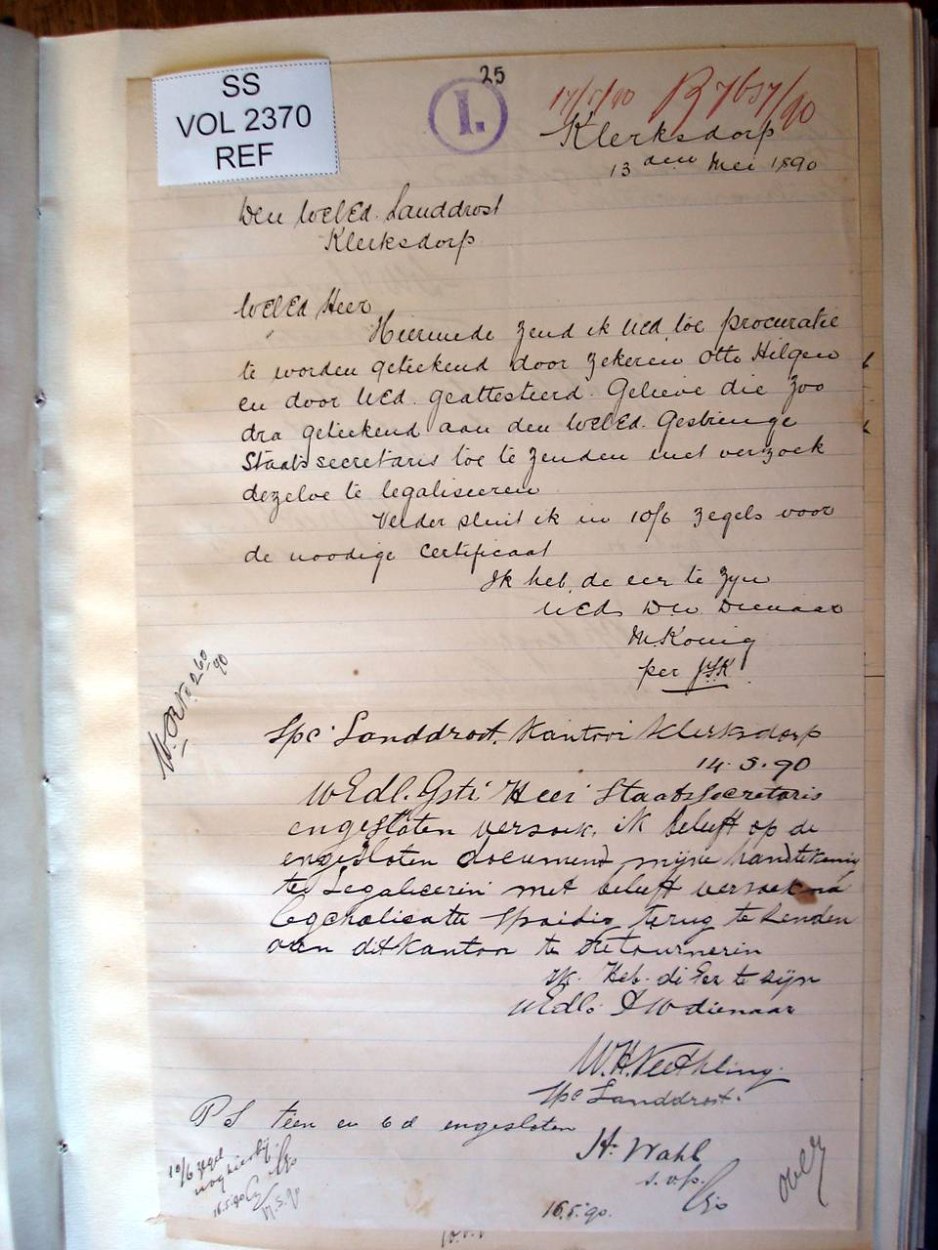 SS
VOL 2370
REF
25
I.
17/5/90 R 7657/90
Klerksdorp
13 den Mei 1890
Den WelEd. Landdrost
Klerksdorp
WelEd Heer
Hiermede zend ik UEd toe procuratie
te worden geteekend door zekeren Otto Hilgen
en door UEd. geattesteerd. Gelieve die zoo
dra geteekend aan den WelEd. Gestrenge
Staatssecretaris toe te zenden met verzoek
dezelve te legaliseeren
Verder sluit ik in 10/6 zegels voor
de noodige certificaat
Ik heb de eer te zyn
UEds Dw Dienaar
M. Konig
per JSK
Spc Landdrost. Kantoor Klerksdorp
14.5.90
WEdl. Gstr Heer Staatssecretaris
engesloten versoek. ik beleeft op de
engesloten document mijne handtekening
te Legaliceerin met beleeft versoek na
spoidig terug te senden
aan dit kantor te Retournerin
Ik Heb di Eer te sijn
WEdls DW dienaar
W.H. Neethling
Spc Landdrost.
PS teen en 6d engesloten
H. Wahl
s.v.p.
10/6 zegel
nog hierbij
16.5.90
16.5.90.